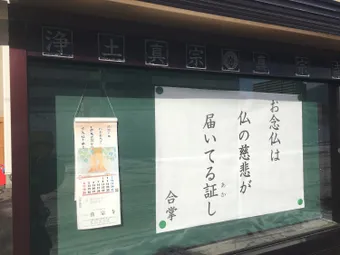 浄土真宗
お念仏は
仏の慈悲が
届いてる証し
あか
合掌